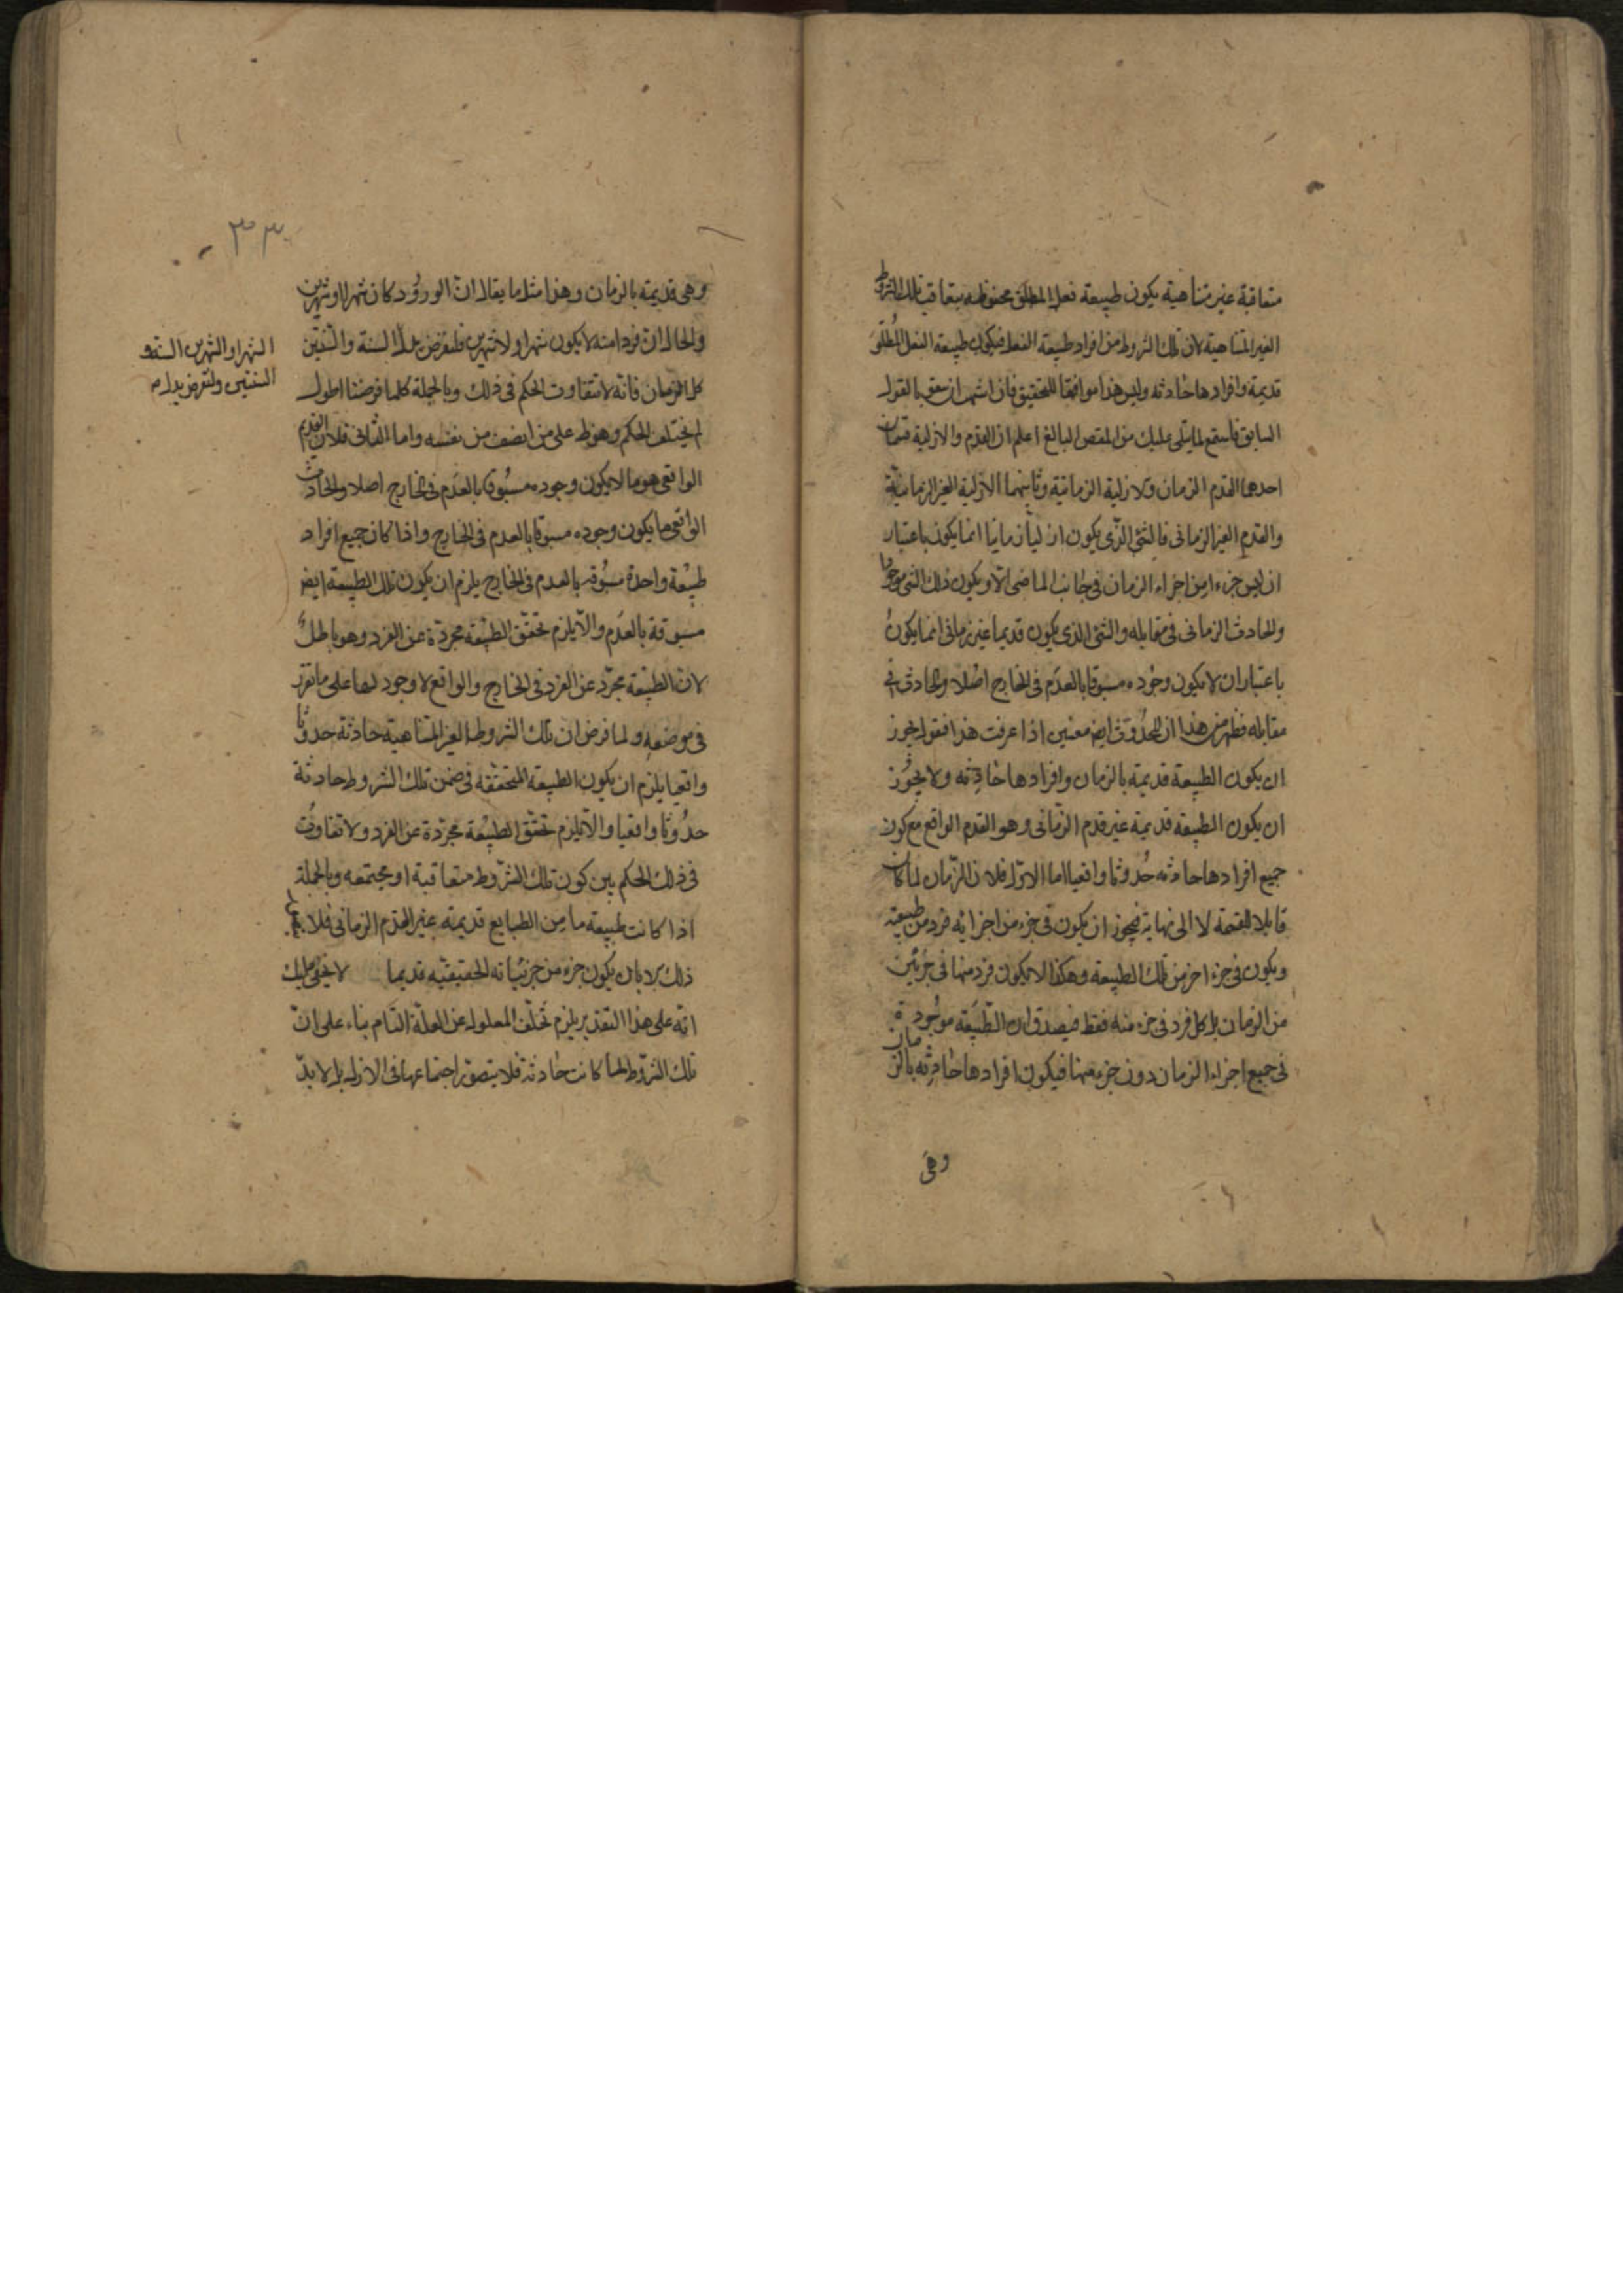 متعاقبة غير متناهية يكون طبيعة فعل المطلق محفوظه بتعاقب تلك الشروط
الغير المتناهية لان تلك الشروط من افراد طبيعة الفعل فيكون طبيعة الفعل المطلق
قديمة وافرادها حادثه وليس هذا موافقا للتحقيق فان اشتهر ان بالقول
السابق فاستمع لما يتلى عليك من المقصد البالغ اعلم ان القدم والازلية قسمان
احدهما القدم الزمان والازلية الزمانية وثانيهما الازلية الغير الزمانية
والقدم الغير الزمانى فالشئ الذى يكون ازليا زمانيا انما يكون باعتبار
ان ليس جزء من اجزاء الزمان فى جانب الماضى الا ويكون ذلك الشئ موجودا
والحادث الزمانى فى مقابله والشئ الذى يكون قديما غير زمانى انما يكون
باعتبار ان لا يكون وجوده مسبوقا بالعدم فى الخارج اصلا والحادث فى
مقابله فظهر من هذا ان للحدوث ايض معنيين اذا عرفت هذا فنقول يجوز
ان يكون الطبيعة قديمة بالزمان وافرادها حادثه ولا يجوز
ان يكون الطبيعة قديمة غير قدم الزمانى وهو القدم الواقع مع كون
جميع افرادها حادثه حدوثا واقعيا اما الاول فلان الزمان لما كان
قابلا للقسمة لا الى نهاية فيجوز ان يكون فى جزء من اجزائه فرد من طبيعة
ويكون فى جزء اخر من تلك الطبيعة وهكذا لا يكون فرد منها فى جزئين
من الزمان بل كل فرد فى جزء منه فقط فيصدق ان الطبيعة موجودة
فى جميع اجزاء الزمان دون جزء منها فيكون افرادها حادثه بالزمان
وهى
٣٣
وهى قديمة بالزمان وهذا مثل ما يقال ان الورود كان شهرا او شهرين
والحال ان فردا منه لا يكون شهرا ولا شهرين فلنفرض بدل السنة والسنتين
كل الزمان فانه لا تتفاوت الحكم فى ذلك وبالجملة كلما فرضنا اطول
لم يختلف الحكم وهو ظ على من انصف من نفسه واما الثانى فلان القديم
الواقعى هو ما لا يكون وجوده مسبوقا بالعدم فى الخارج اصلا والحادث
الواقعى ما يكون وجوده مسبوقا بالعدم فى الخارج واذا كان جميع افراد
طبيعة واحدة مسبوقه بالعدم فى الخارج يلزم ان يكون تلك الطبيعة ايض
مسبوقة بالعدم والا يلزم تحقق الطبيعة مجردة عن الفرد وهو باطل
لان الطبيعة مجرد عن الفرد فى الخارج والواقع لا وجود لها على ما تقرر
فى موضعه ولما فرض ان تلك الشروط الغير المتناهية حادثة حدوثا
واقعيا يلزم ان يكون الطبيعة المتحققه فى ضمن تلك الشروط حادثة
حدوثا واقعيا والا يلزم تحقق الطبيعة مجردة عن الفرد ولا تفاوت
فى ذلك الحكم بين كون تلك الشروط متعاقبة او مجتمعه وبالجملة
اذا كانت طبيعة ما من الطبايع قديمة غير القدم الزمانى فلا
ذلك الا بان يكون جزء من جزئياته الحقيقيه قديما لا يخفى عليك
انه على هذا التقدير يلزم تخلف المعلول عن العلة التام بناء على ان
تلك الشروط لما كانت حادثة فلا يتصور اجتماعها فى الازل بل لا بد
الشهر او الشهرين السنة و
السنتين ولنفرض بدل م